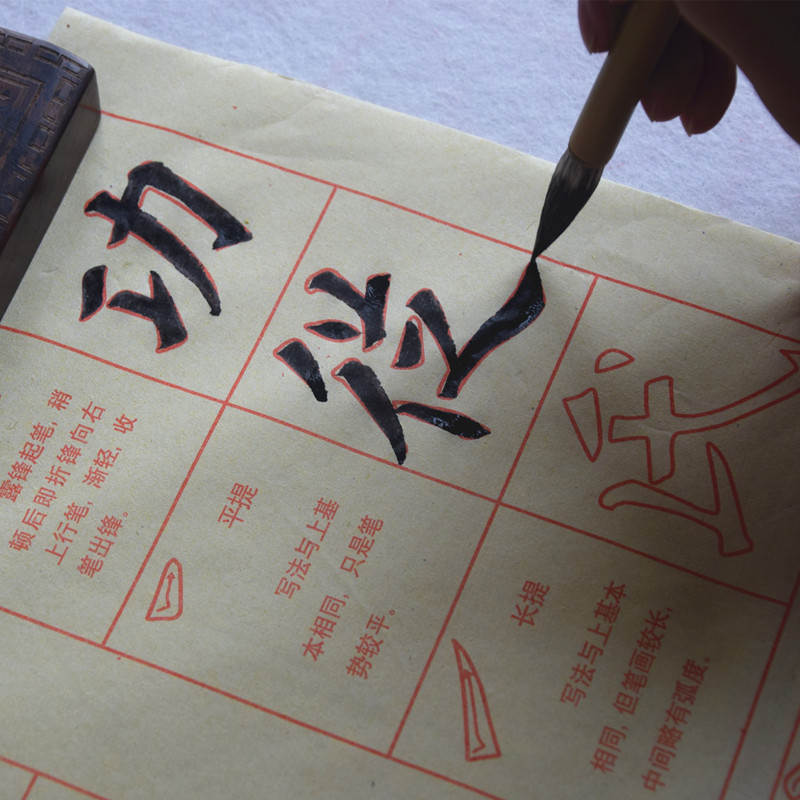 功
露锋起笔，稍
顿后即折锋向右
上行笔，渐轻，收
笔出锋。
平提
写法与上基
本相同，只是笔
势较平。
长提
写法与上基本
相同，但笔画较长，
中间略有弧度。